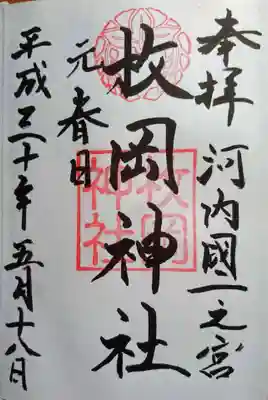 奉拝 河内國一之宮
枚岡神社
元春日
平成三十年五月十八日
枚岡
神社